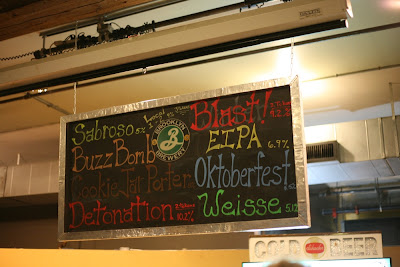 Sabroso 5%
BuzzBomb
Cookie Jar Porter
Detonation 10.2%
BROOKLYN
B
BREWERY
Blast!
EIPA 6.9%
Oktoberfest
Weisse 5.1%
COLD BEER